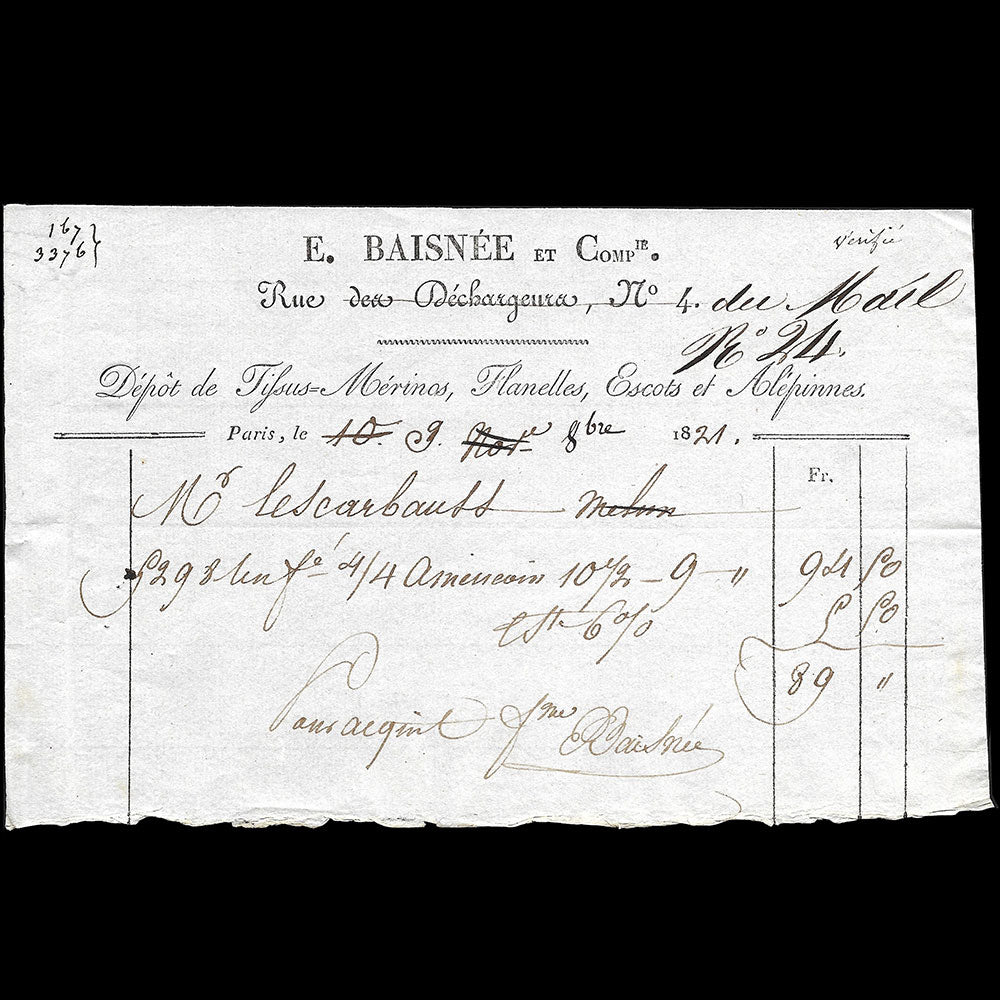 167
3376
Vérifié
E. BAISNÉE ET COMP^IE.
Rue des Déchargeurs, N° 4. du Mail
N° 24.
Dépôt de Tissus=Mérinos, Flanelles, Escots et Alépinnes.
Paris, le 10. 9. Nov^e 8^bre 1821.
Fr.
M^r Lescarbault Melun
5298 f^é 4/4 10 1/2 - 9 - " 94 50
Est^e 6% 5 50
89 "
Pour acquit f^me Baisnée